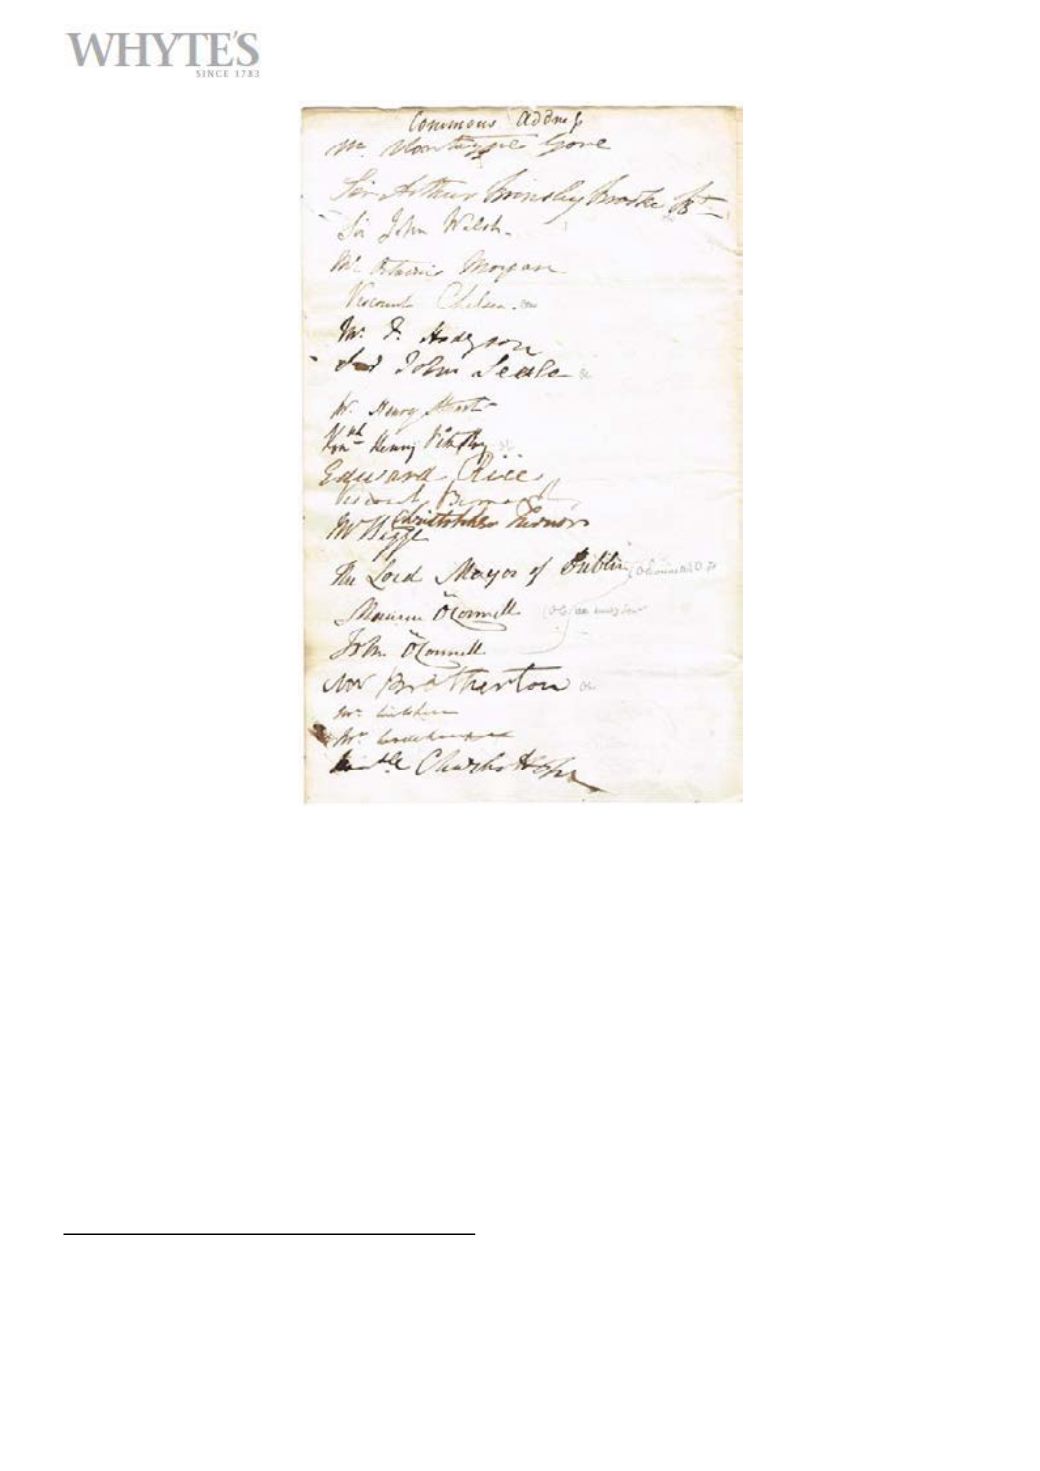 WHYTE'S
SINCE 1783
Commons Address
Mr. Montague Gore
Sir Arthur Brinsley Brooke Bt
Sir John Walsh.
Mr. Octavius Morgan
Viscount Chelsea.
Mr. F. Hodgson
John Seale
Mr. Henry Stuart
Honble Henry
Edward Rice
Viscount Bernard
Christopher Turnor
Mr Bigge
The Lord Mayor of Dublin
Maurice O'Connell
John O'Connell
Mr Brotherton
Mr.
Mr.
Charles Hope